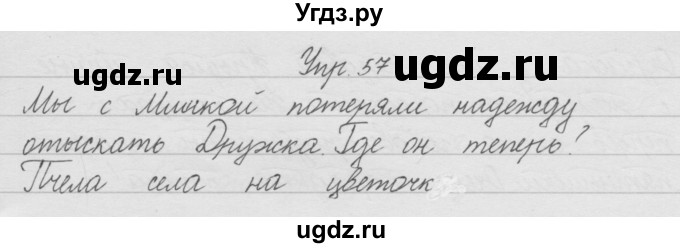 Угдз.ру
ugdz.ru
ugdz.ru
Упр. 57
Мы с Мишкой потеряли надежду
отыскать Дружка. Где он теперь?
Пчела села на цветочк
ugdz.ru
ugdz.ru